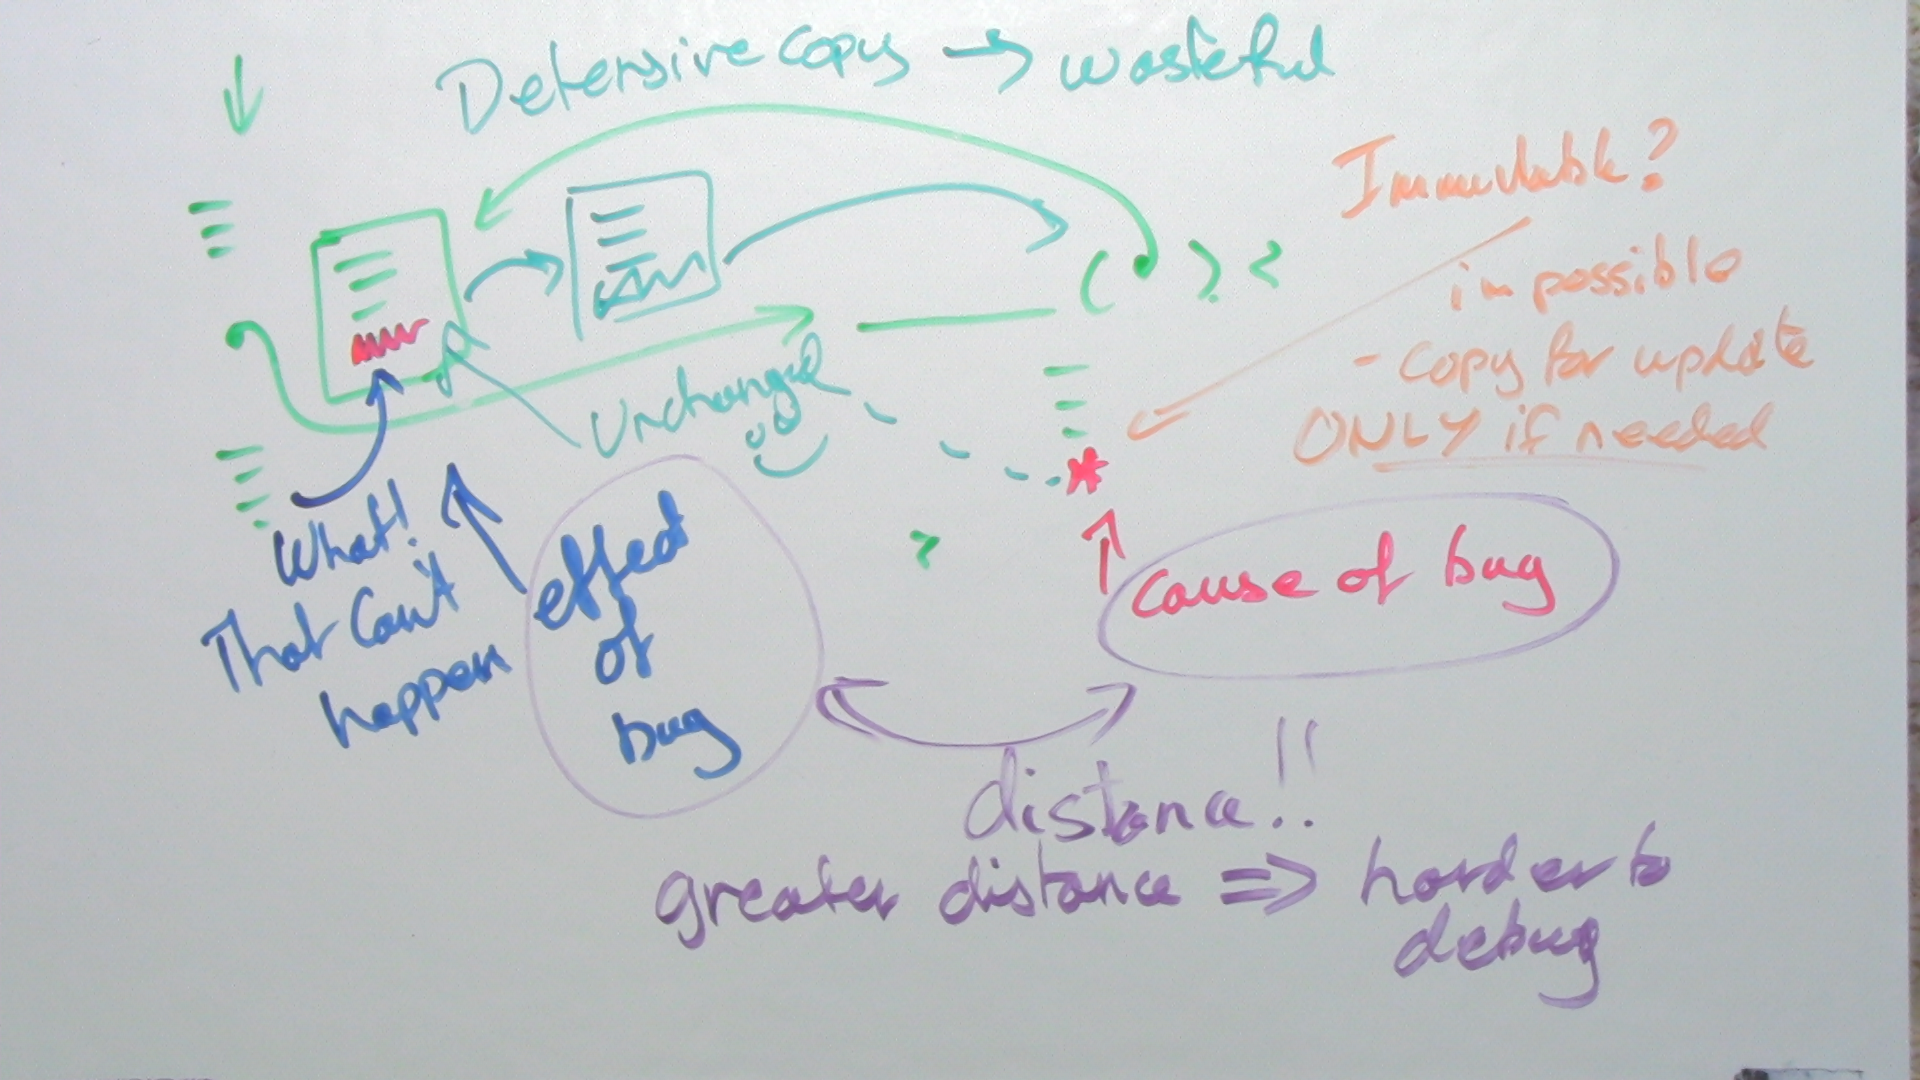 Defensive copy → wasteful
Immutable?
impossible
- copy for update
ONLY if needed
Unchanged
What!
That Can't
happen
effect
of
bug
cause of bug
distance!!
greater distance => harder to
debug